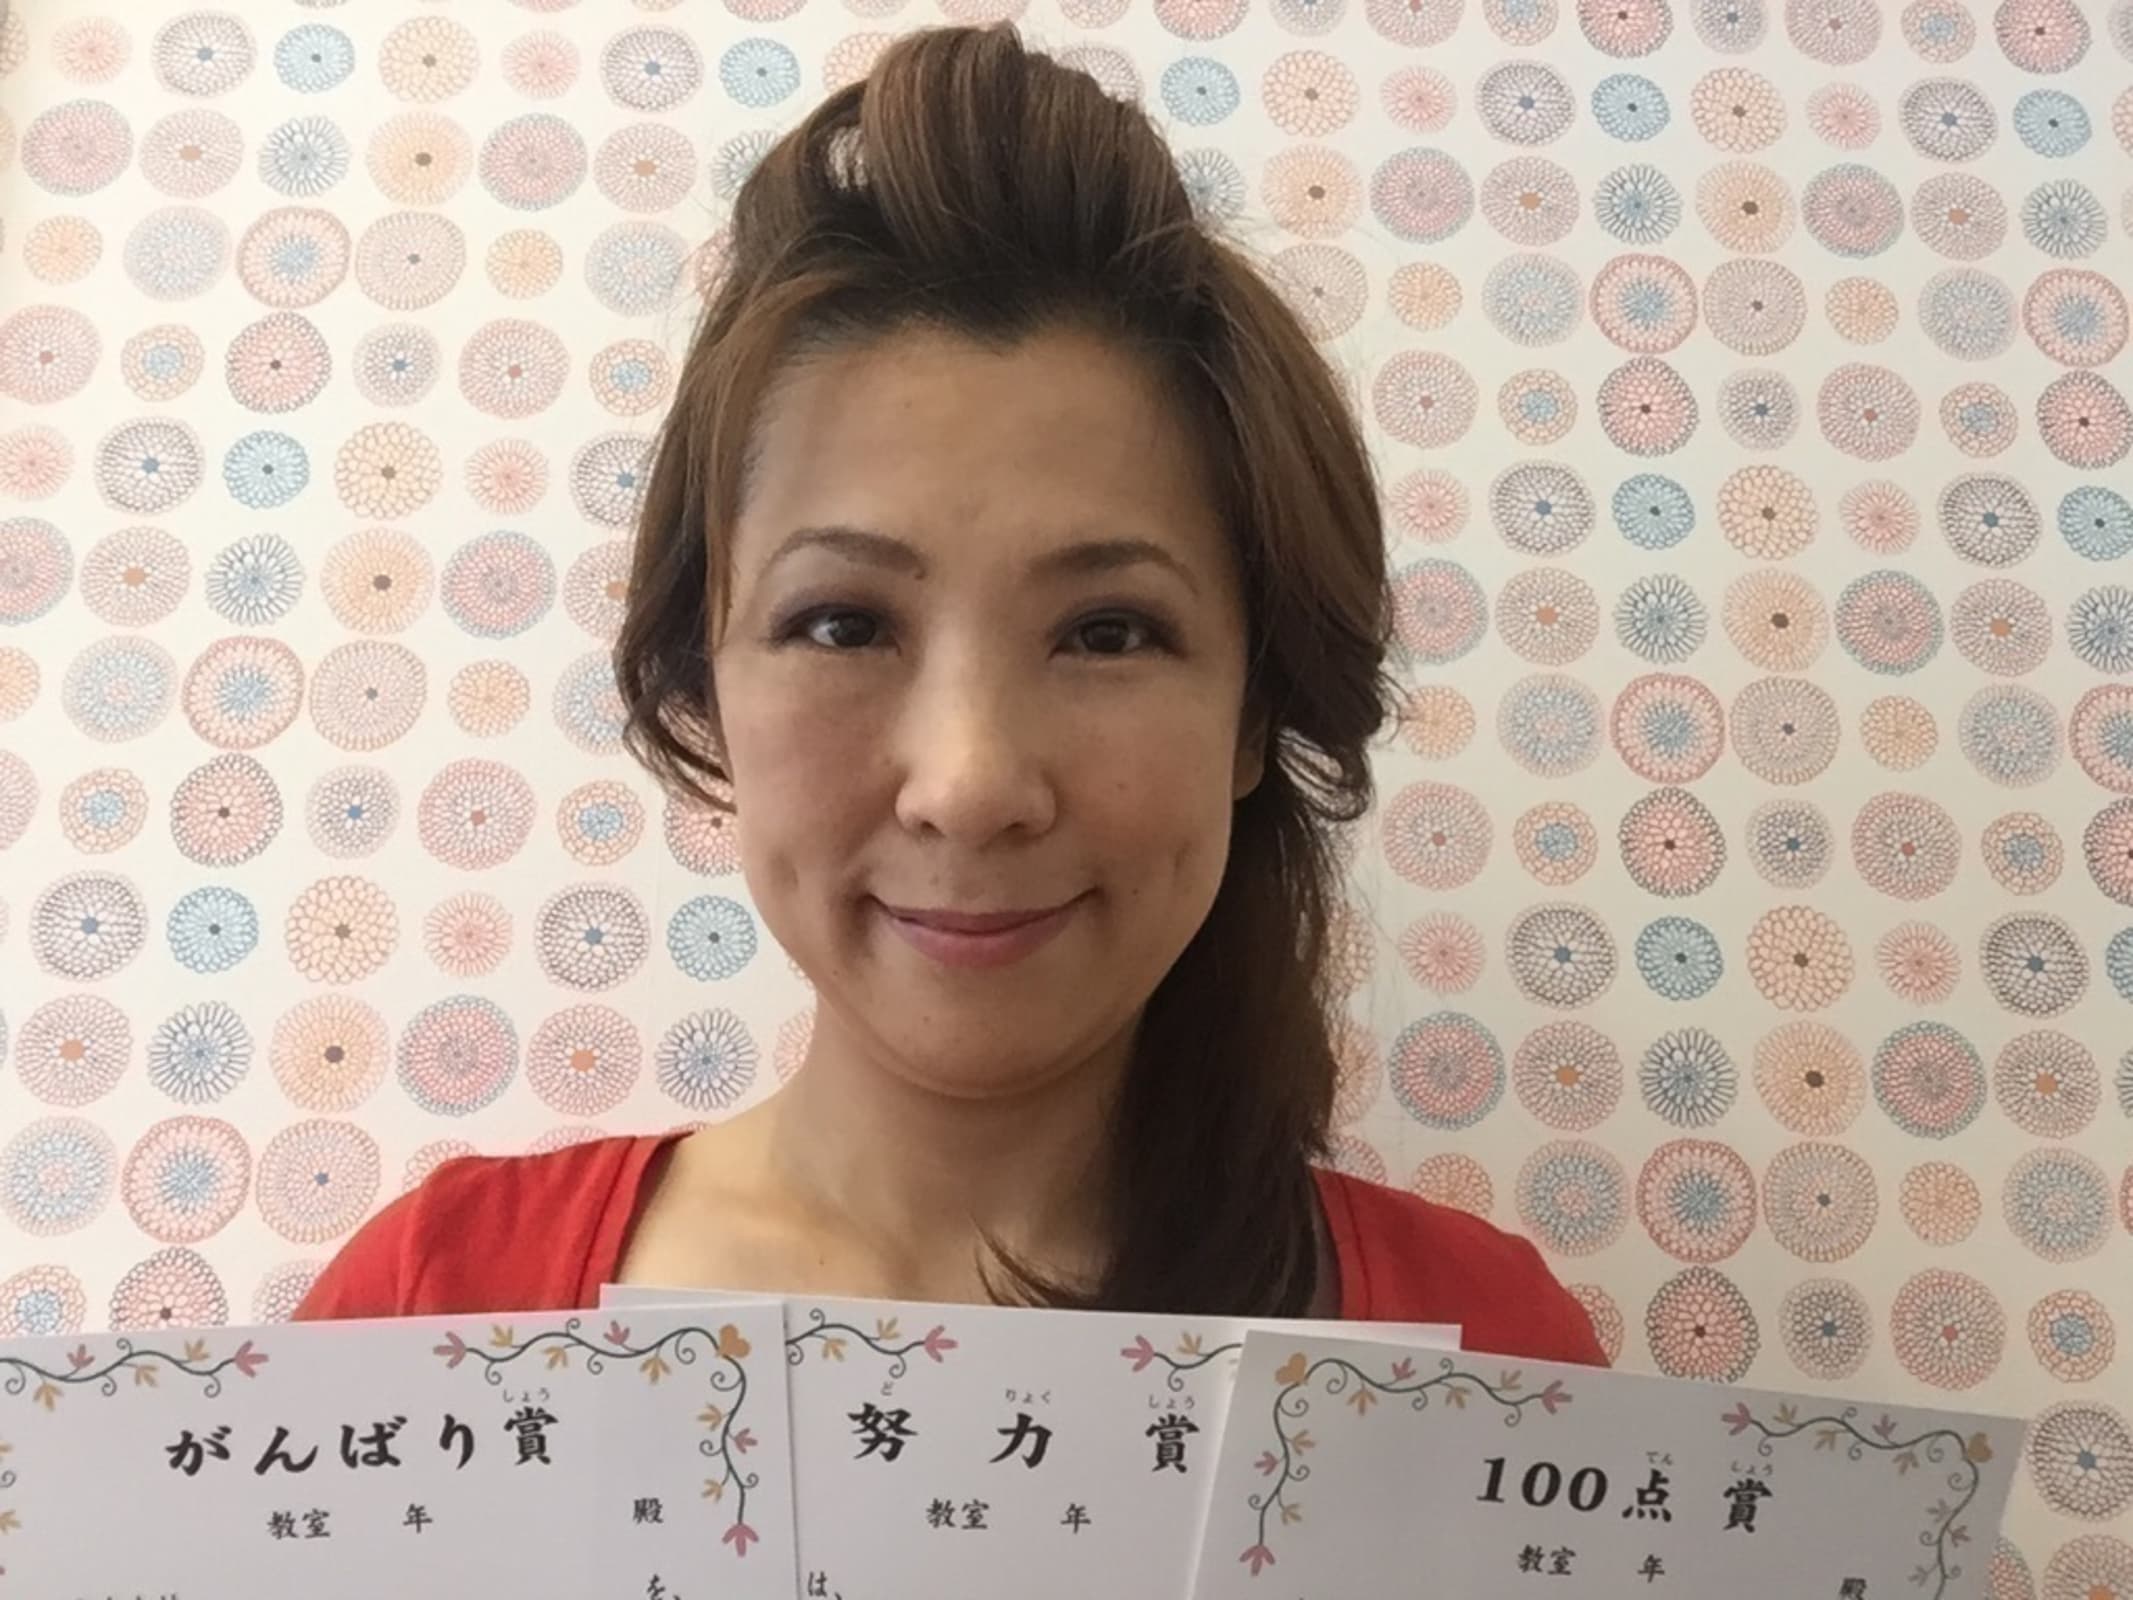 しょう
がんばり賞
教室 年 殿
を、
ど りょく しょう
努力賞
教室 年
は、
てん しょう
100点賞
教室 年 殿